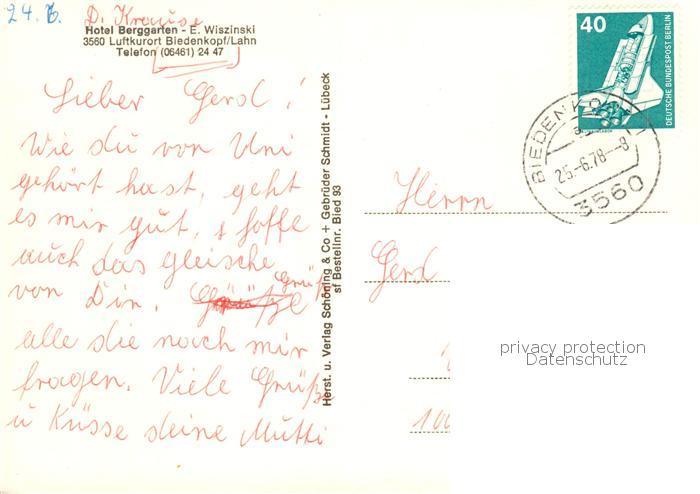 24. 6.
D. Krause
Hotel Berggarten - E. Wiszinski
3560 Luftkurort Biedenkopf/Lahn
Telefon (06461) 24 47
Lieber Gerd!
Wie du von Uni
gehört hast, geht
es mir gut, & hoffe
auch das gleische
von Dir. Grüß
alle die nach mir
fragen. Viele Grüße
u Küsse deine Mutti
Herst. u. Verlag Schöning & Co + Gebrüder Schmidt - Lübeck
sf Bestellnr. Bied 93
40
DEUTSCHE BUNDESPOST BERLIN
BIEDENKOPF
25.-6.78.--8
3560
Herrn
Gerd
privacy protection
Datenschutz